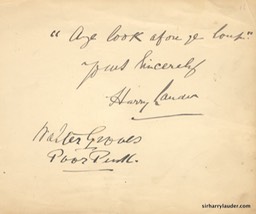 "Aye look afore ye loup"
Yours Sincerely
Harry Lauder
Walter Groves
Poor Pu
sirharrylauder.com